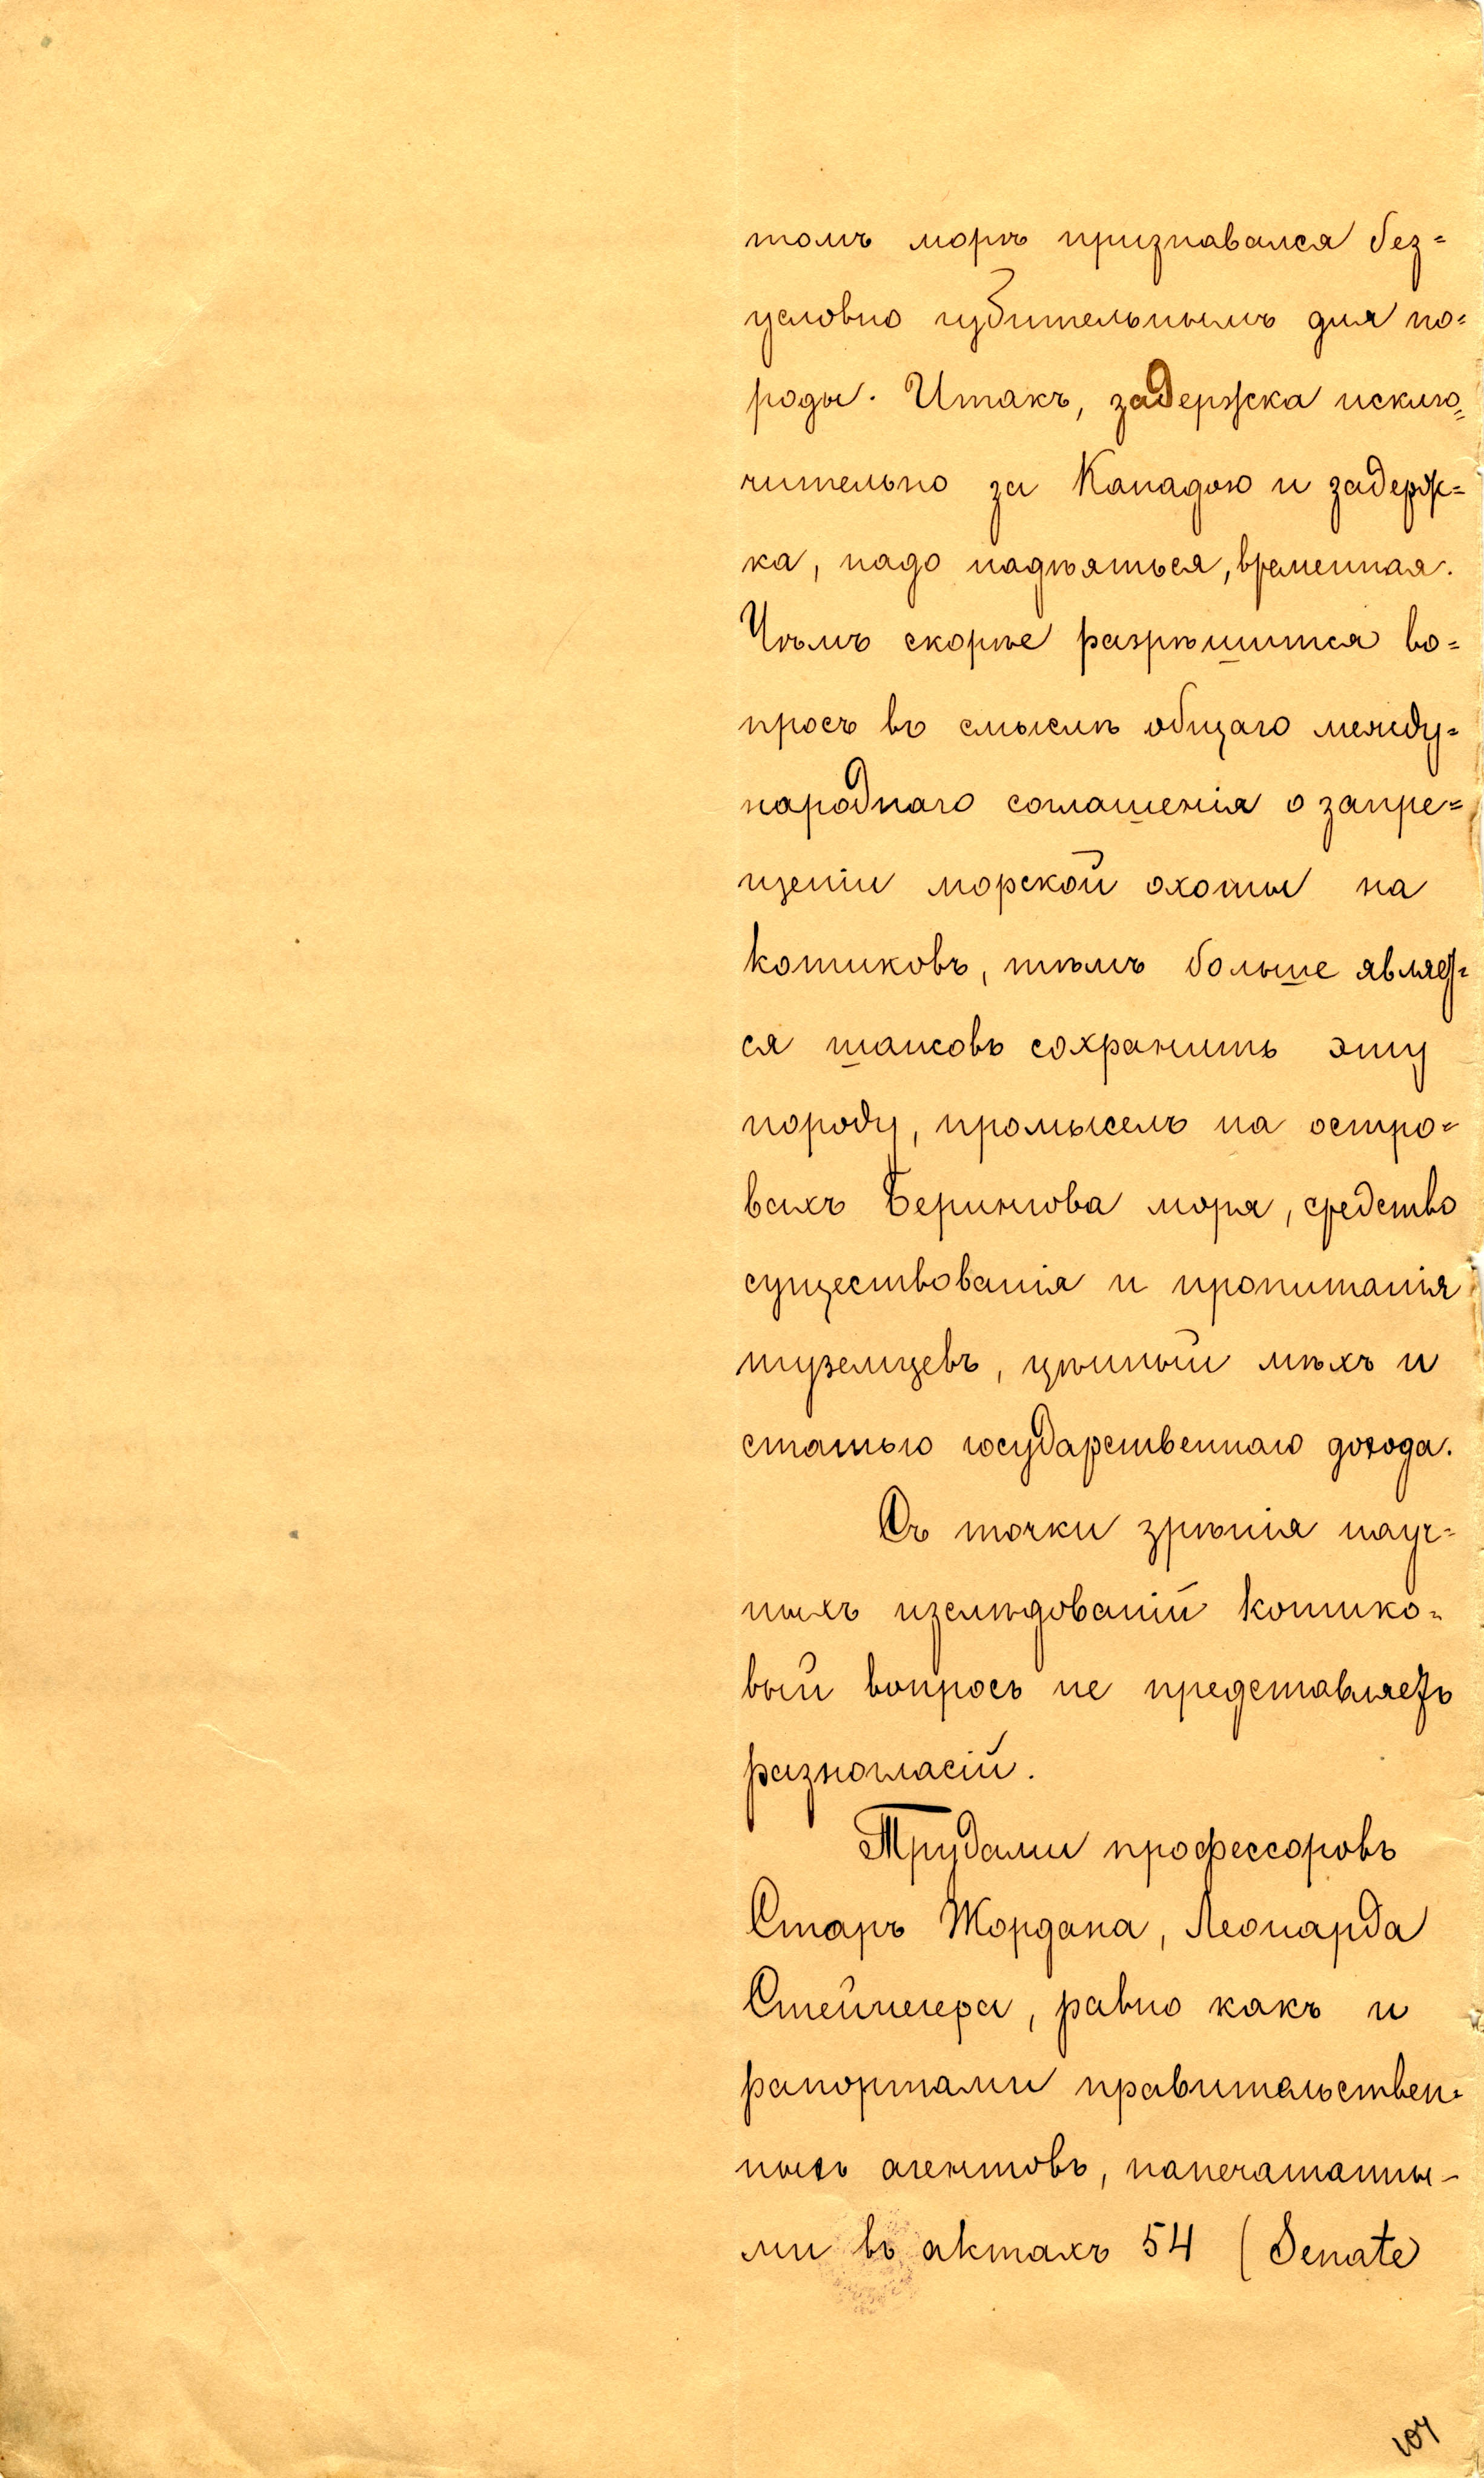 томъ морѣ признавался без=
условно губительнымъ для по=
роды. Итакъ, задержка исклю=
чительно за Канадою и задерж=
ка, надо надѣяться, временная.
Чѣмъ скорѣе разрѣшится во=
просъ въ смыслѣ общаго между=
народнаго соглашенія о запре=
щеніи морской охоты на
котиковъ, тѣмъ больше являет=
ся шансовъ сохранить эту
породу, промыселъ на остро=
вахъ Берингова моря, средство
существованія и пропитанія
туземцевъ, цѣнный мѣхъ и
статью государственнаго дохода.
Съ точки зрѣнія науч=
ныхъ изслѣдованій котико=
вый вопросъ не представляетъ
разногласій.
Трудами профессоровъ
Старъ Жордана, Леонарда
Стейнегера, равно какъ и
рапортами правительствен=
ныхъ агентовъ, напечатанны-
ми въ актахъ 54 (Senate
104